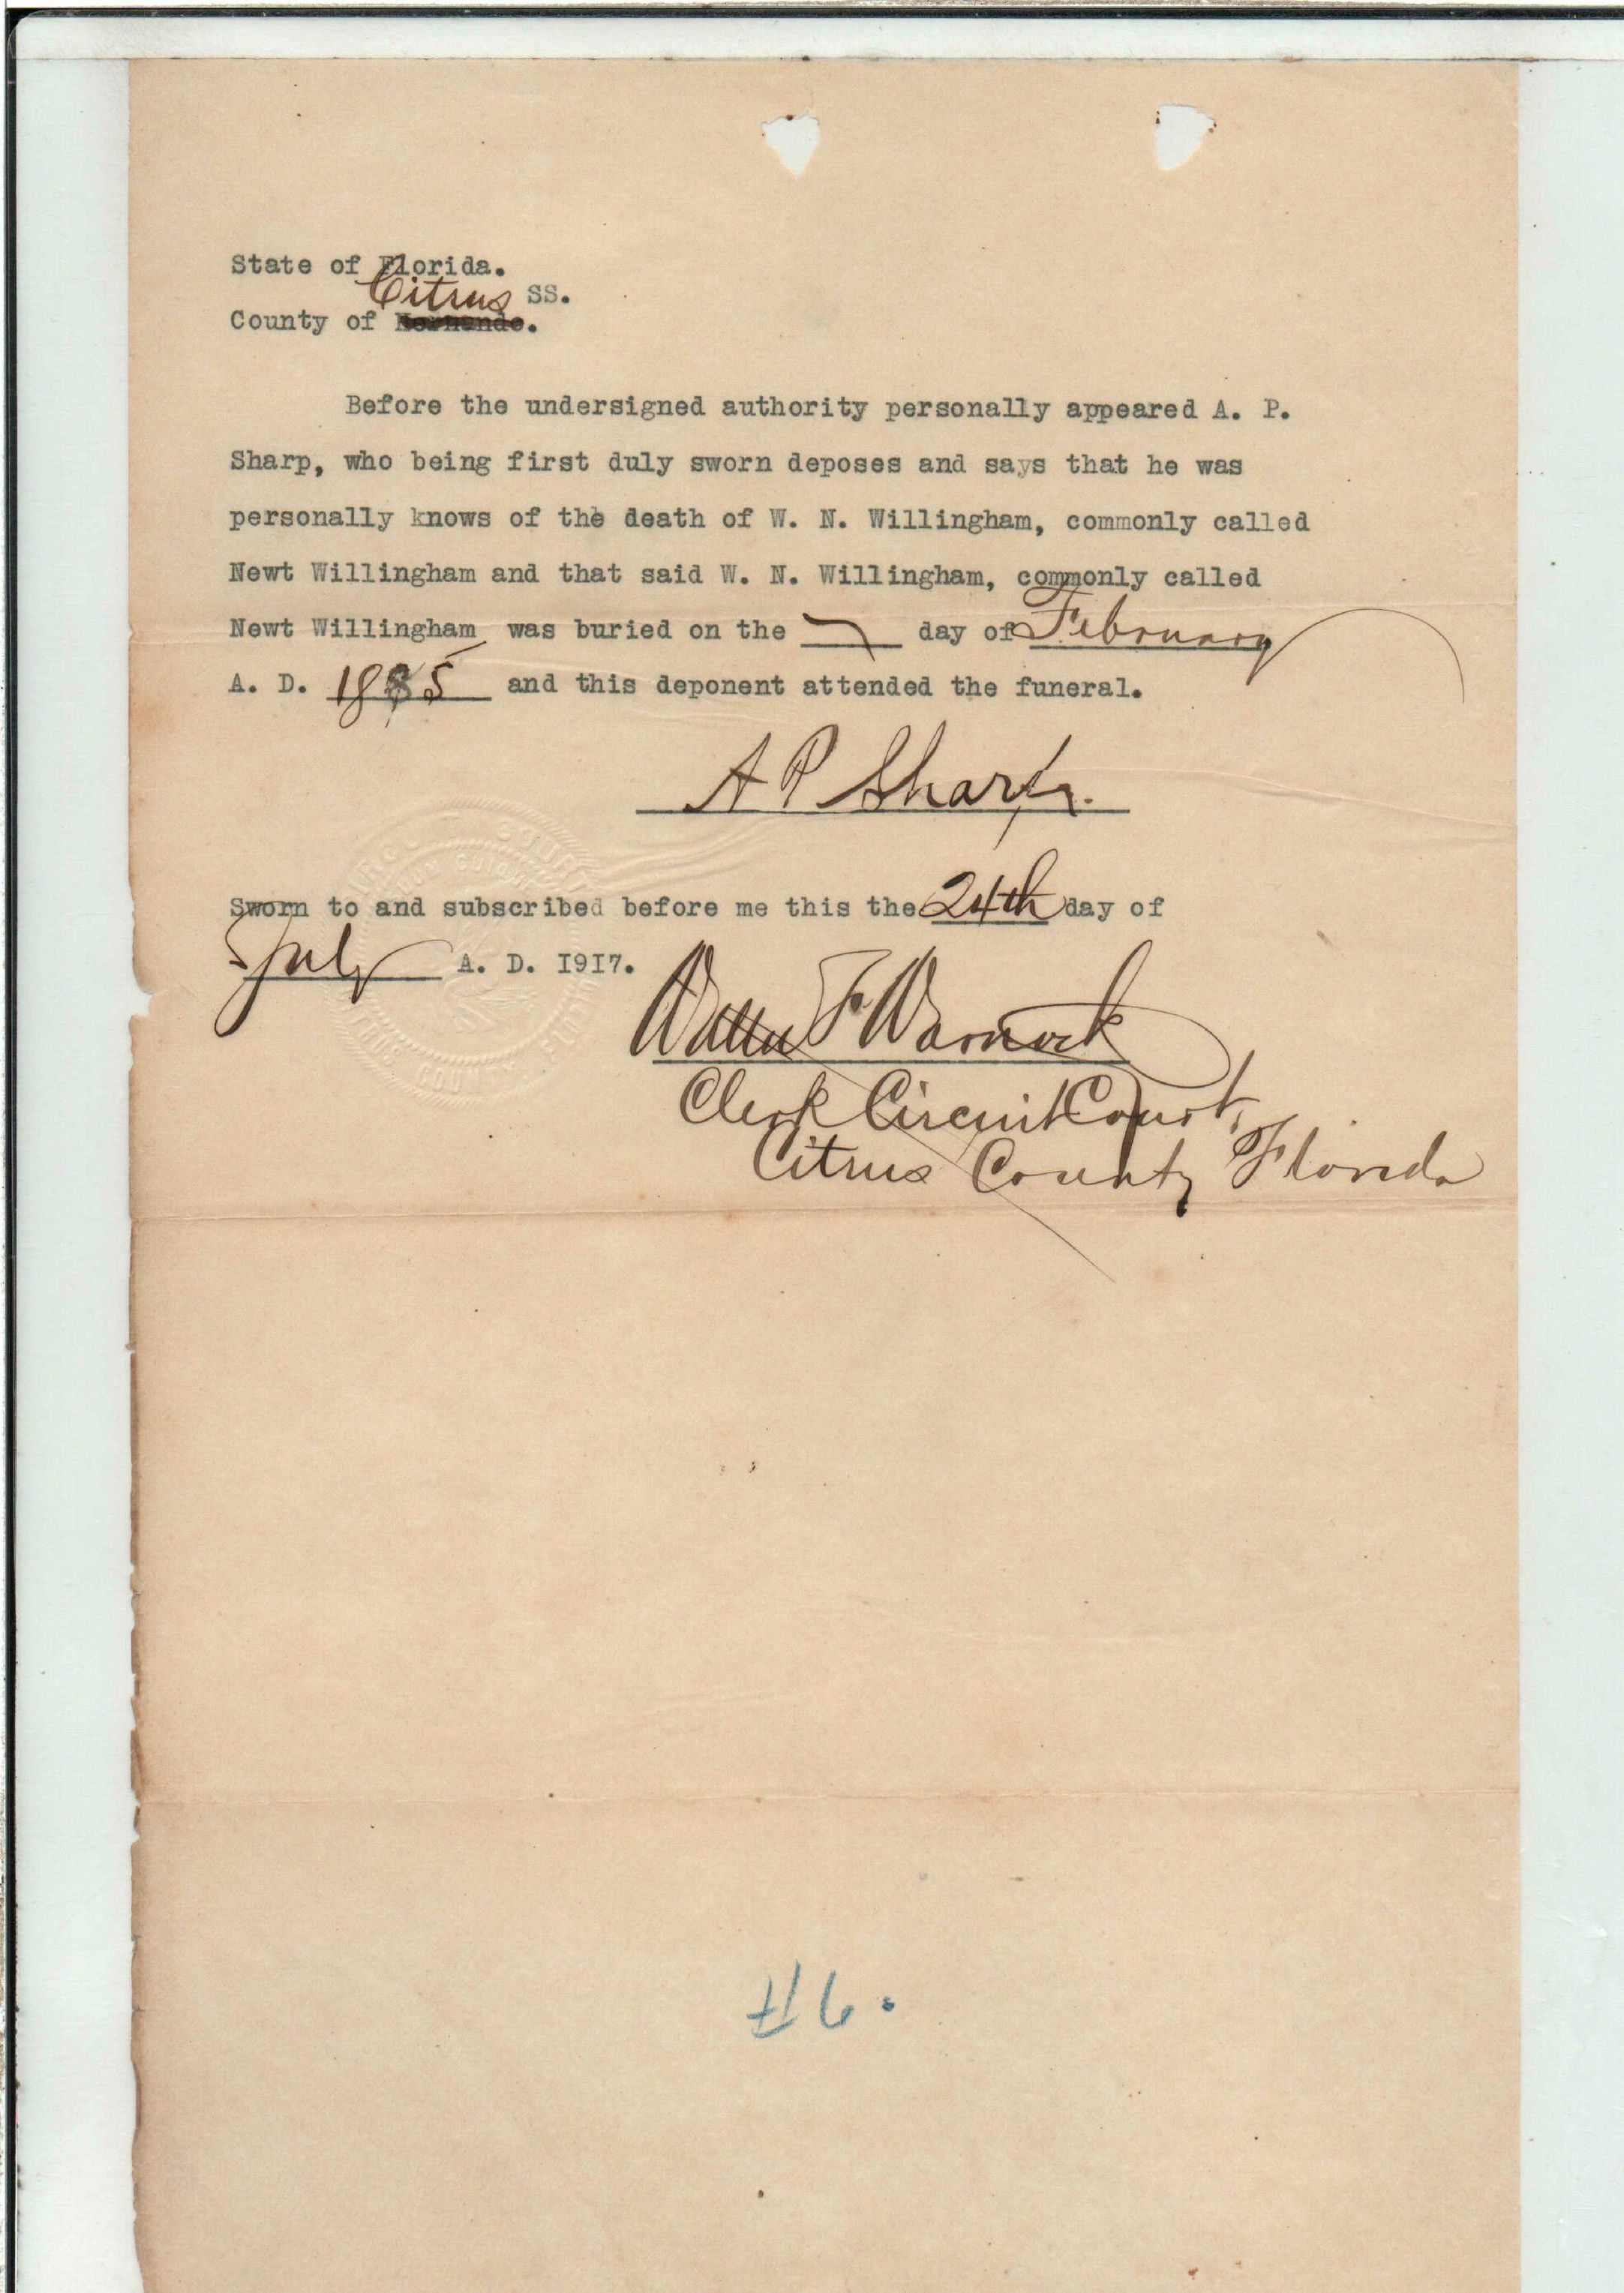 State of Florida.
Citrus SS.
County of Hernando.
Before the undersigned authority personally appeared A. P.
Sharp, who being first duly sworn deposes and says that he was
personally knows of the death of W. N. Willingham, commonly called
Newt Willingham and that said W. N. Willingham, commonly called
Newt Willingham was buried on the day of February
A. D. 1885 and this deponent attended the funeral.
A P Sharp.
Sworn to and subscribed before me this the 24th day of
July A. D. 1917.
Walter F Warnock
Clerk Circuit Court,
Citrus County Florida
#6.